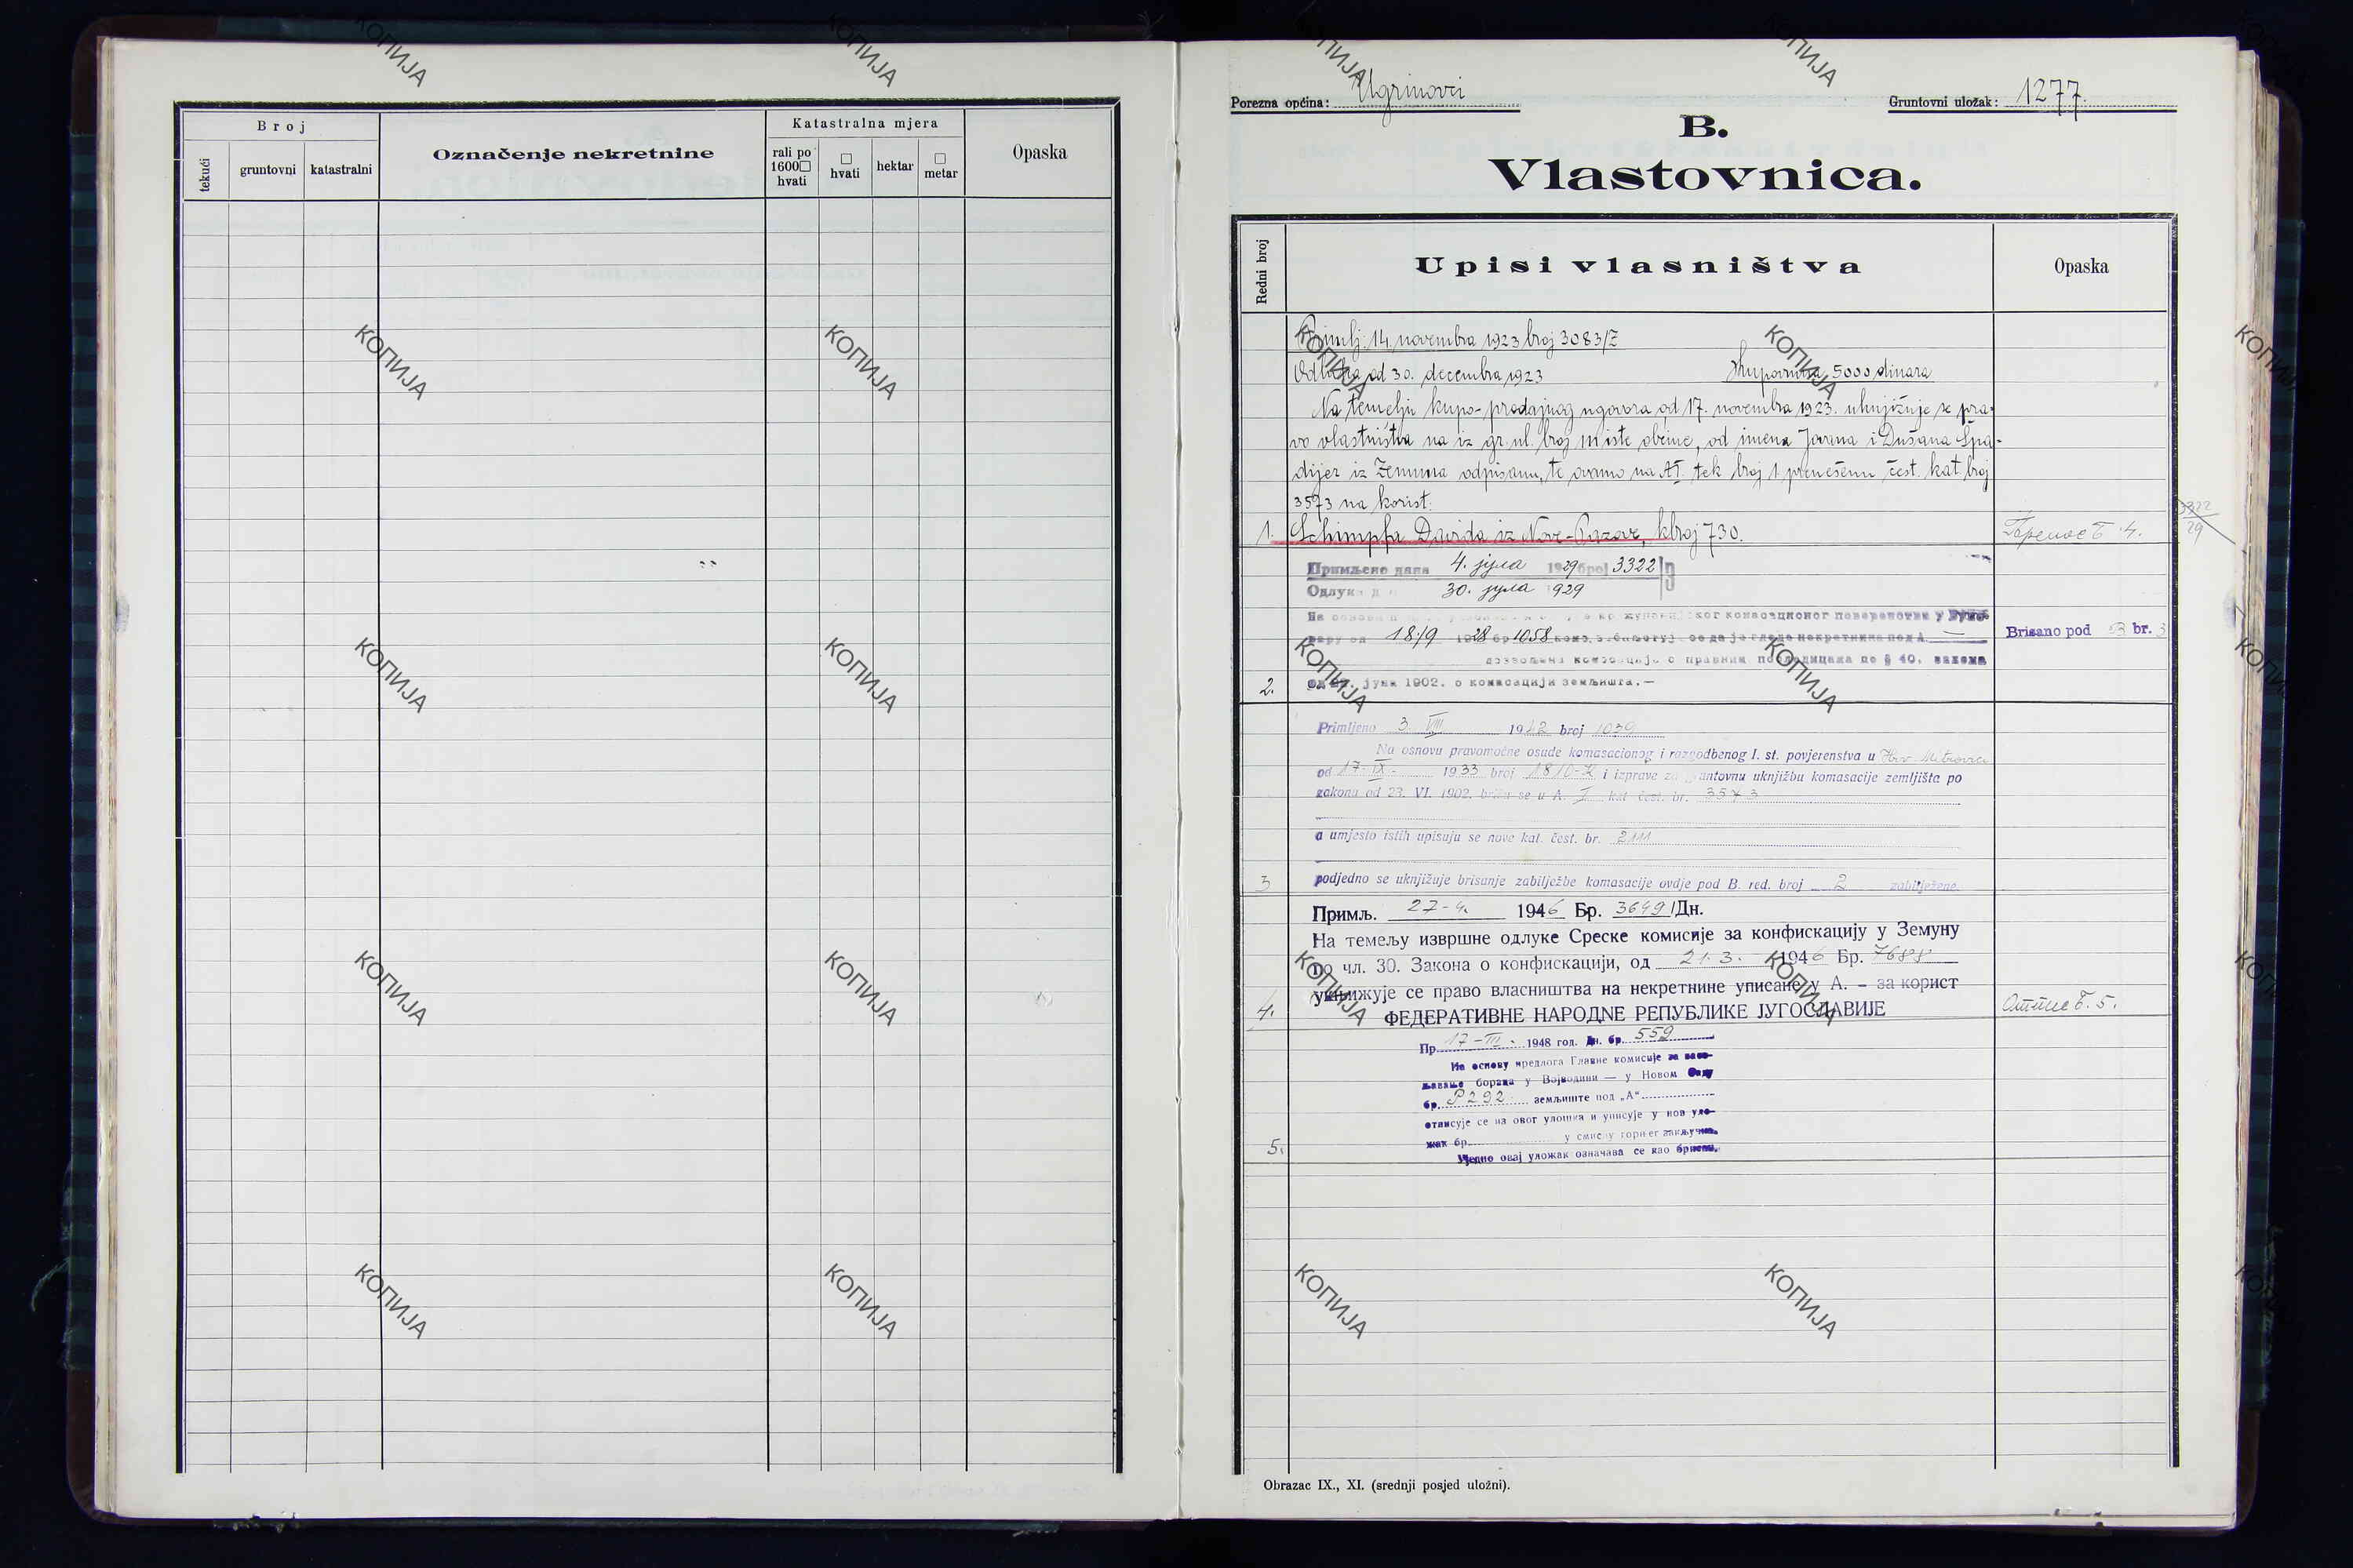 Broj
Označenje nekretnine
Katastralna mjera
Opaska
tekući
gruntovni
katastralni
rali po 1600□ hvati
□ hvati
hektar
□ metar
Porezna općina: Ugrinovci
Gruntovni uložak: 1277.
B.
Vlastovnica.
Redni broj
Upisi vlasništva
Opaska
Primlj: 14. novembra 1923 broj 3083/Z
Odluka od 30. decembra 1923
Kupovnina 5000 dinara
Na temelju kupo-prodajnog ugovora od 17. novembra 1923. uknjižuje se pra-
vo vlastništva na iz gr. ul. broj iste obćine, od imena Jovana i Dušana Spa-
dijer iz Zemuna odpisanu, te ovamo na AI tek broj 1 prenešenu čest. kat. broj
3573 na korist:
1. Schimpfa Davida iz Nove-Pazove, kbroj 730.
Пренос Б. 4.
3322
29
Примљено дана 4. јула 1929 број 3322
Одлука 30. јула 1929
На основи комасационог повереништва у
18/9 1928 бр 1058 некретнина под А —
комасација с правним последицама по § 40. закона
2. јуна 1902. о комасацији земљишта.—
Brisano pod B br. 3
Primljeno 3. VIII 1942 broj 1039
Na osnovu pravomoćne osude komasacionog i razgodbenog I. st. povjerenstva u Hrv. Mitrovici
od 17-IX- 1933 broj 1810-K i izprave za gruntovnu uknjižbu komasacije zemljišta po
zakonu od 23. VI. 1902. briše se u A. I kat čest. br. 3573
a umjesto istih upisuju se nove kat. čest. br. 2111
3 podjedno se uknjižuje brisanje zabilježbe komasacije ovdje pod B. red. broj 2 zabilježene.
Примљ. 27-4. 1946 Бр. 3649/Дн.
На темељу извршне одлуке Среске комисије за конфискацију у Земуну
по чл. 30. Закона о конфискацији, од 21.3. 1946 Бр. 7688
укњижује се право власништва на некретнине уписане у А. – за корист
4. ФЕДЕРАТИВНЕ НАРОДNE РЕПУБЛИКЕ ЈУГОСЛАВИЈЕ
Отпис Б. 5.
Пр. 17-III- 1948 год. Дн. бр. 559
На основу предлога Главне комисије за насе-
љавање бораца у Војводини — у Новом Саду
бр. P292 земљиште под „А"
отписује се из овог улошка и уписује у нов уло-
жак бр. у смислу горњег закључка.
5. Уједно овај уложак означава се као брисан.
Obrazac IX., XI. (srednji posjed uložni).
КОПИЈА